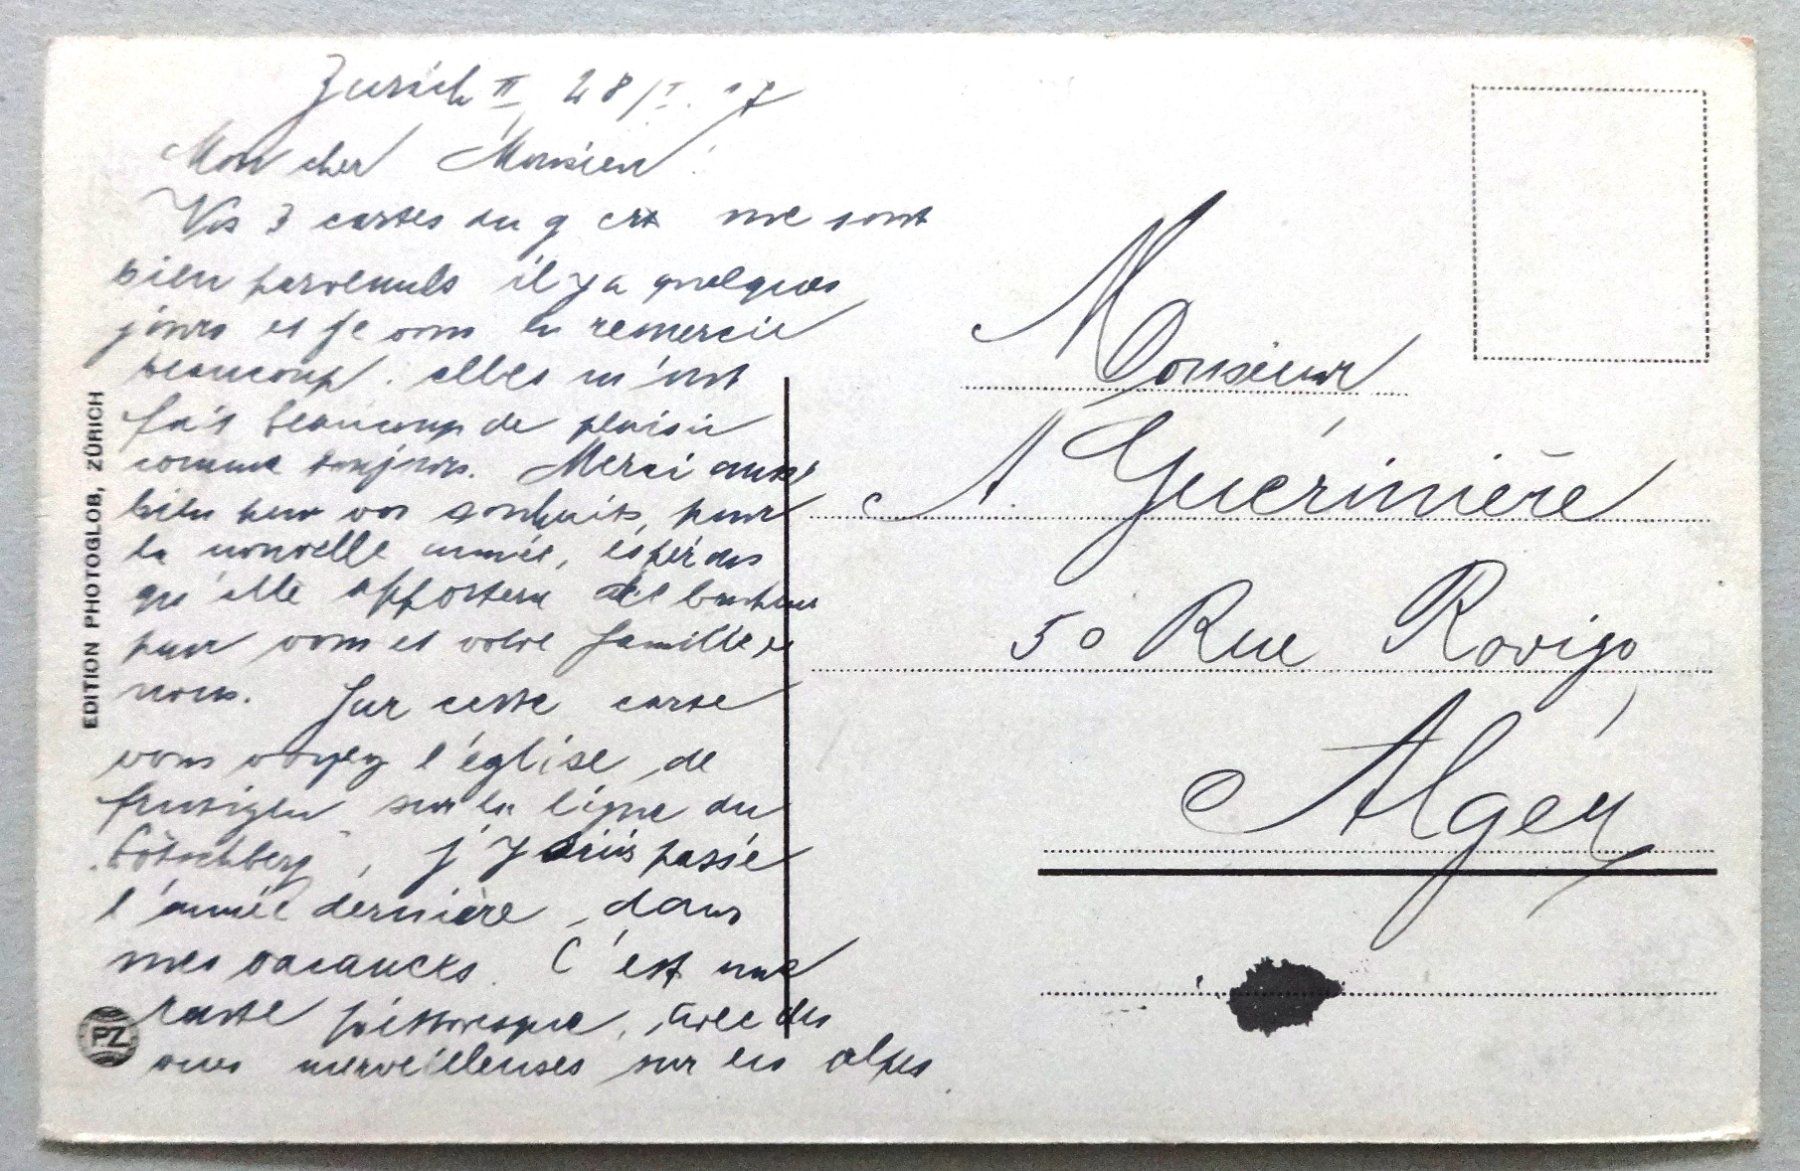 Zurich II, 28/I. 17
Mon cher Monsieur!
Vos 3 cartes du 9 crt me sont
bien parvenues il y a quelques
jours et je vous en remercie
beaucoup. elles m'ont
fait beaucoup de plaisir
comme toujours. Merci aussi
bien pour vos souhaits, pour
la nouvelle année, espérons
qu'elle apportera du bonheur
pour vous et votre famille et
nous. Sur cette carte
vous voyez l'église de
frutigen sur la ligne du
"Lötschberg", j'y suis passé
l'année dernière, dans
mes vacances. C'est une
route pittoresque, avec des
vues merveilleuses sur les alpes
EDITION PHOTOGLOB, ZÜRICH
PZ
Monsieur
A. Guérinière
50 Rue Rovigo,
Alger